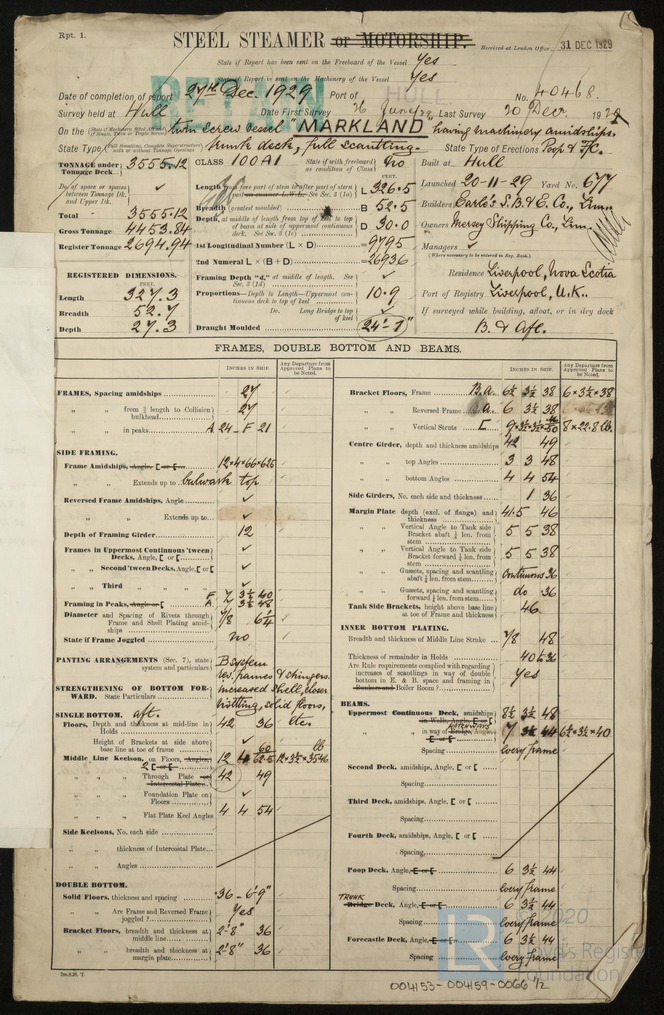 Rpt. 1.
STEEL STEAMER or MOTORSHIP.
Received at London Office 31 DEC 1929
State if Report has been sent on the Freeboard of the Vessel Yes
Report is sent on the Machinery of the Vessel Yes
RETAIN
HULL
Date of completion of report 27th Dec. 1929 Port of No. 40468.
Survey held at Hull Date First Survey 26 June Last Survey 20 Dec. 1929
On the twin screw vessel "MARKLAND" having machinery amidships.
State Type trunk deck, full scantling. State Type of Erections Poop & F'c.
TONNAGE under Tonnage Deck 3555.12
CLASS 100A1 State if with freeboard as condition of Class No
Built at Hull
Do. of space or spaces between Tonnage Dk. and Upper Dk. ✓
Launched 20-11-29 Yard No. 677
Total 3555.12
Gross Tonnage 4453.84
Register Tonnage 2694.94
L 326.5
Breadth (greatest moulded) B 52.5
D 30.0
1st Longitudinal Number (L × D) 9795
2nd Numeral L × (B + D) 26936
Framing Depth "d," at middle of length. See Sec. 3 (1d) ✓
Proportions—Depth to Length—Uppermost continuous deck to top of keel 10.9
Do. Long Bridge to top of keel ✓
Draught Moulded 24'-7"
Builders Earle's S.B. & E. Co., Lim.
Owners Mersey Shipping Co., Lim.
Managers ✓
(Where necessary to be entered in Reg. Book.)
Residence Liverpool, Nova Scotia
Port of Registry Liverpool, U.K.
If surveyed while building, afloat, or in dry dock
B. & Afl.
REGISTERED DIMENSIONS.
FEET.
Length 327.3
Breadth 52.7
Depth 27.3
FRAMES, DOUBLE BOTTOM AND BEAMS.
INCHES IN SHIP.
Any Departure from Approved Plans to be Noted.
FRAMES, Spacing amidships 27
" " from ⅕ length to Collision bulkhead 27
" " in peaks A 24 - F 21
SIDE FRAMING.
Frame Amidships, Angle, [ or [ 12 × 4 × 66 × 625
" " Extends up to bulwark top
Reversed Frame Amidships, Angle ✓
" " Extends up to
Depth of Framing Girder 12
Frames in Uppermost Continuous 'tween Decks, Angle, [ or [ ✓
" " Second 'tween Decks, Angle, [ or [ ✓
" " Third " " " ✓
Framing in Peaks, Angle or [ F 7 3½ 40
A 3½ 48
Diameter and Spacing of Rivets through Frame and Shell Plating amidships 7/8
State if Frame Joggled no
PANTING ARRANGEMENTS (Sec. 7), state system and particulars B system
rev. frames & stringers.
STRENGTHENING OF BOTTOM FORWARD. State Particulars Increased shell, closer
rivetting, solid floors, etc
SINGLE BOTTOM. aft.
Floors, Depth and thickness at mid-line in Holds 42 36
Height of Brackets at side above base line at toe of frame ✓
Middle Line Keelson, on Floors, Angles, 2 [ or [ 12
" " Through Plate or Intercostal Plate 42 49
" " Foundation Plate on Floors ✓
" " Flat Plate Keel Angles 4 4 54
Side Keelsons, No. each side
" " thickness of Intercostal Plate
" " Angles
DOUBLE BOTTOM.
Solid Floors, thickness and spacing 36 - 6'9"
" " Are Frame and Reversed Frame joggled? Yes
Bracket Floors, breadth and thickness at middle line 2'-8" 36
" " breadth and thickness at margin plate 2'-8" 36
Bracket Floors, Frame B.A. 6½ 3½ 38 6 × 3½ × 38
" " Reversed Frame B.A. 6 3½ 38
" " Vertical Struts [ 9 × 3½ × 3½ 8 × 22.8 lb.
Centre Girder, depth and thickness amidships 42 49
" " top Angles 3 3 48
" " bottom Angles 4 4 54
Side Girders, No. each side and thickness 1 36
Margin Plate depth (excl. of flange) and thickness 41.5 46
" " Vertical Angle to Tank side Bracket abaft ¼ len. from stem 5 5 38
" " Vertical Angle to Tank side Bracket forward ¼ len. from stem 5 5 38
" " Gussets, spacing and scantling abaft ¼ len. from stem continuous 36
" " Gussets, spacing and scantling forward ¼ len. from stem do 36
Tank Side Brackets, height above base line at toe of Frame and thickness 46
INNER BOTTOM PLATING.
Breadth and thickness of Middle Line Strake 7/8 48
Thickness of remainder in Holds 40 to 36
Are Rule requirements complied with regarding increase of scantlings in way of double bottom in E. & B. space and framing in Bunkers and Boiler Room? Yes
BEAMS.
Uppermost Continuous Deck, amidships in Wells, Angle, [ or [ 8½ 3½ 48
" " in way of HATCHWAYS Bridge, Angle, [ or [ 7 3½ 44 6½ × 3½ × 40
Spacing every frame
Second Deck, amidships, Angle, [ or [
Spacing
Third Deck, amidships, Angle, [ or [
Spacing
Fourth Deck, amidships, Angle, [ or [
Spacing
Poop Deck, Angle, [ or [ 6 3½ 44
Spacing every frame
TRUNK Bridge Deck, Angle, [ or [ 6 3½ 44
Spacing every frame
Forecastle Deck, Angle, [ or [ 6 3½ 44
Spacing every frame
© 2020
LR Lloyd's Register Foundation
004153-004159-0066 1/2